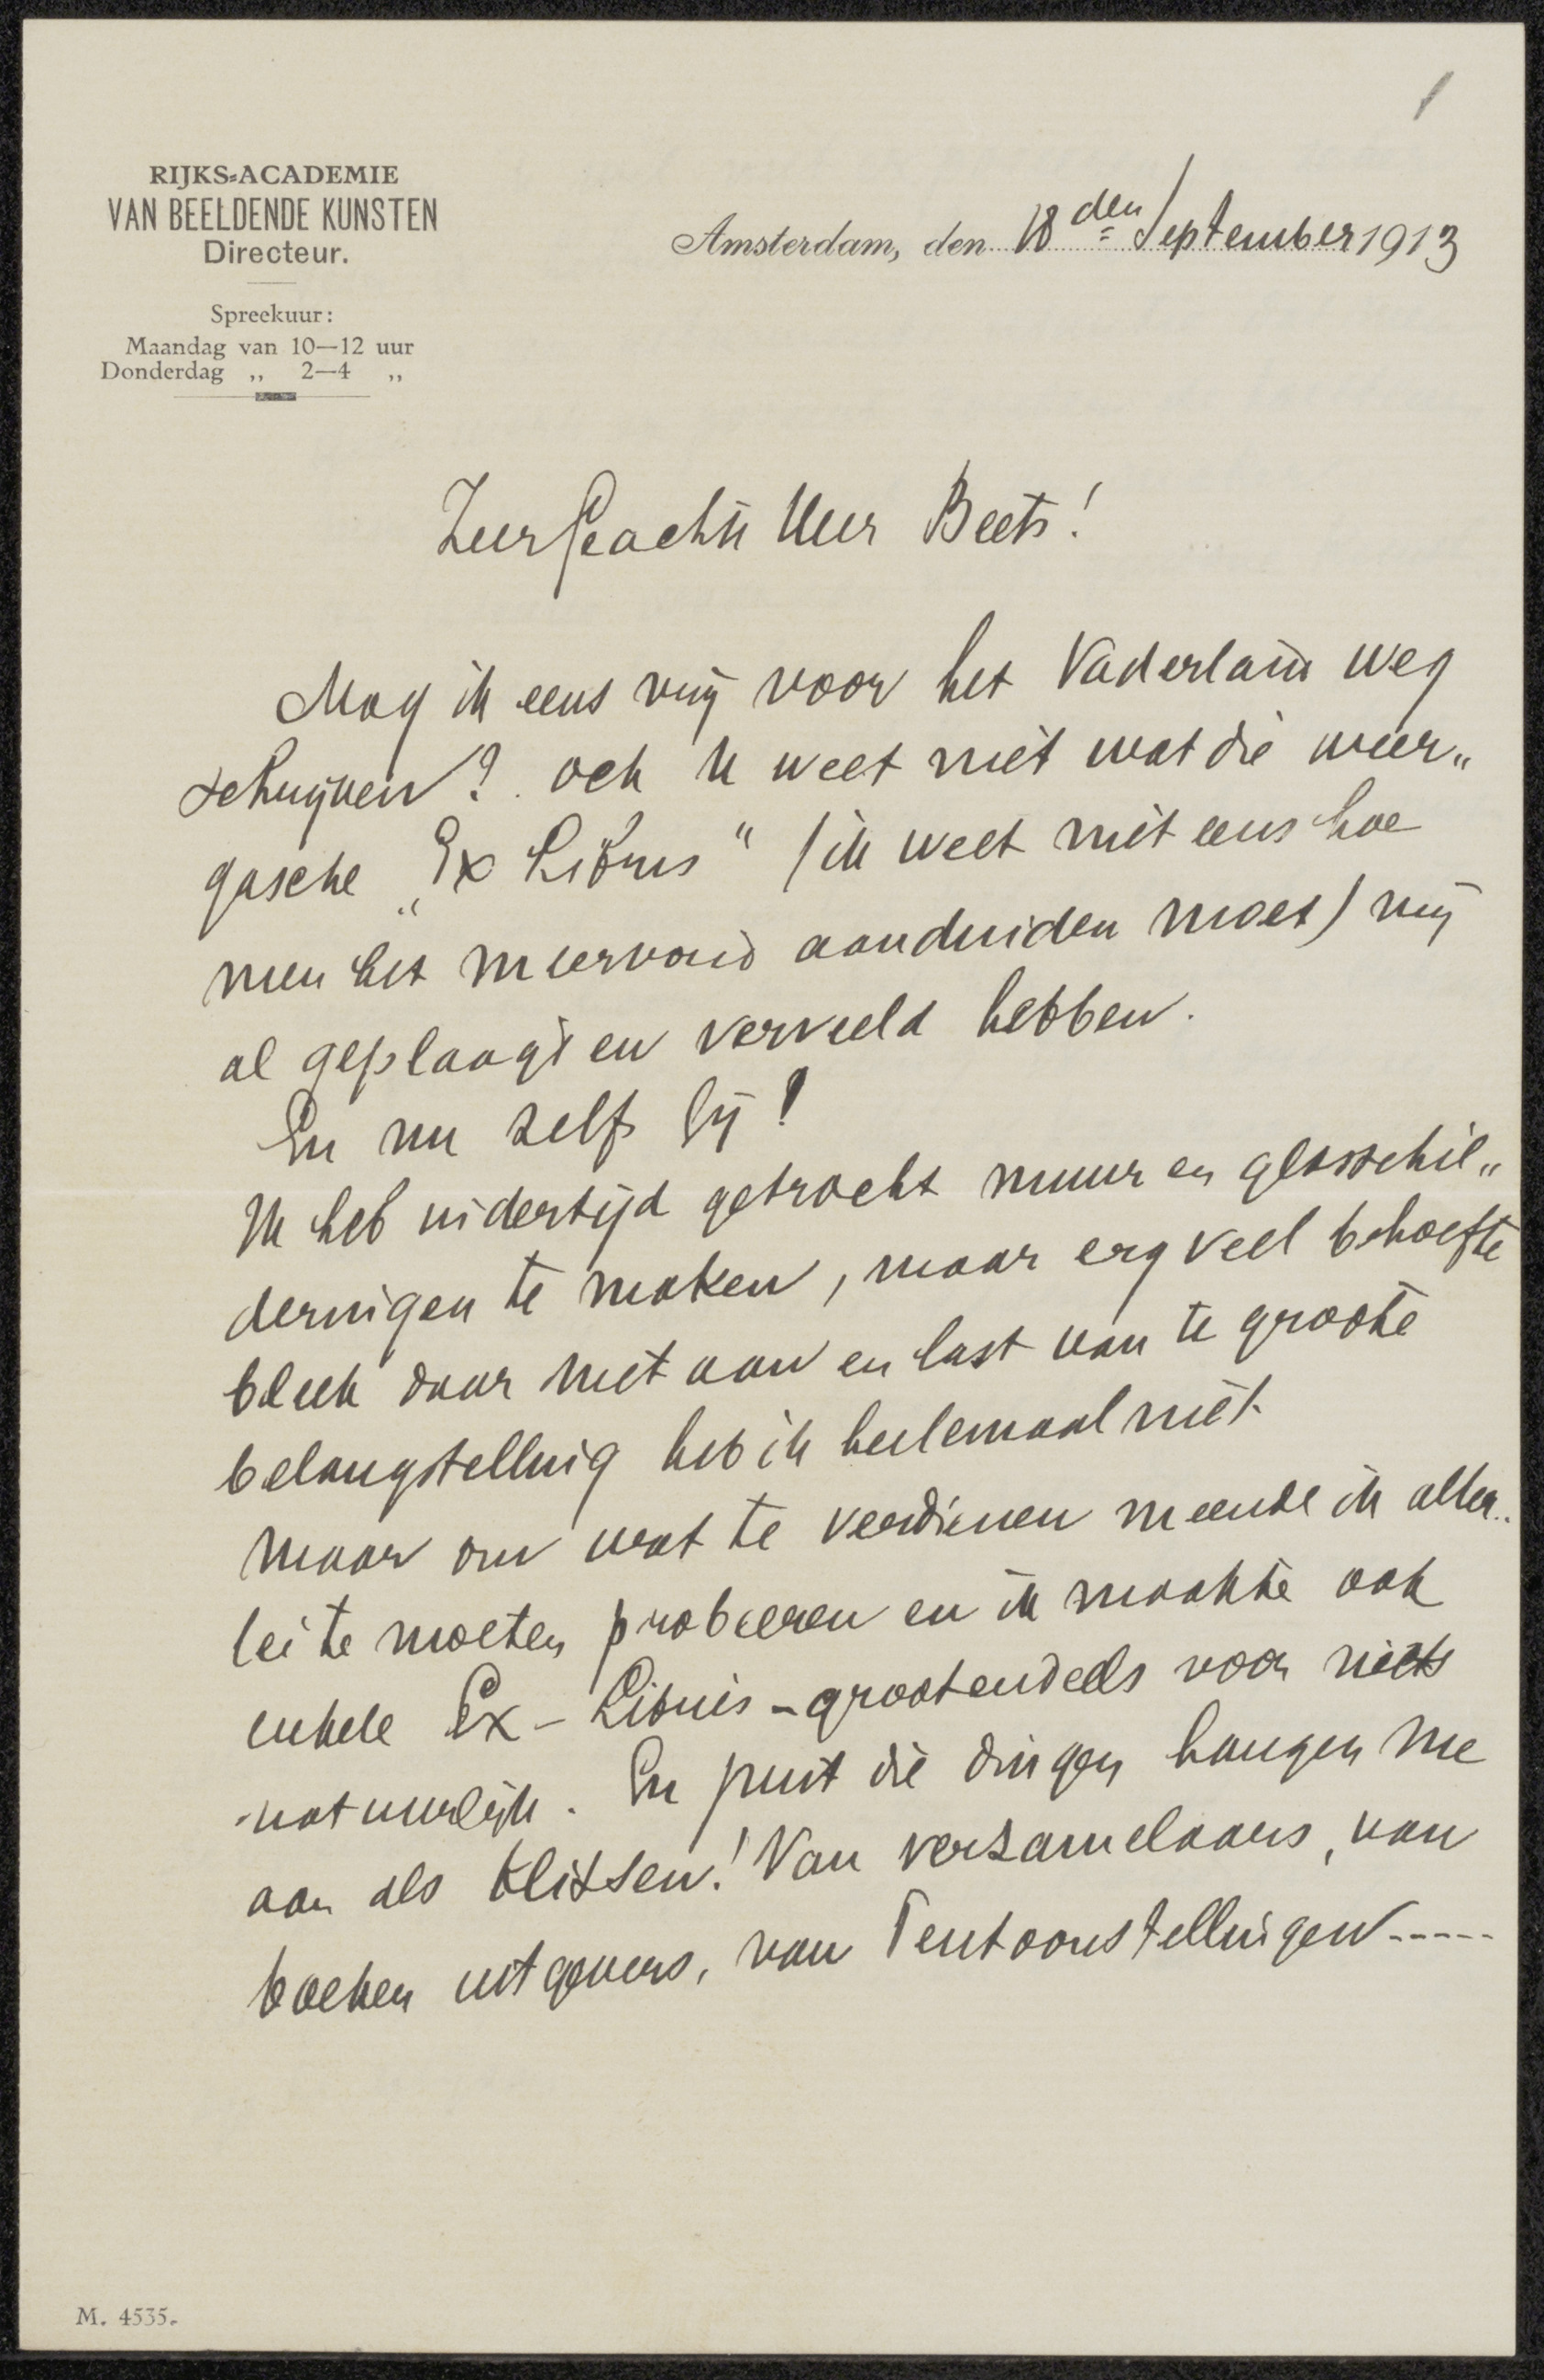 1
RIJKS-ACADEMIE
VAN BEELDENDE KUNSTEN
Directeur.
Spreekuur:
Maandag van 10—12 uur
Donderdag „ 2—4 „
Amsterdam, den 18den September 1913
Zeer Geachte Heer Beets!
Mag ik eens vrij voor het Vaderland weg
schrijven? och U weet niet wat die weer„
gasche „Ex Libris" (ik weet niet eens hoe
men het meervoud aanduiden moet) mij
al geplaagd en verveeld hebben.
En nu zelfs Gij!
Ik heb indertijd getracht muur en glasschil„
deringen te maken, maar erg veel behoefte
bleek daar niet aan en last van te groote
belangstelling heb ik heelemaal niet
maar om wat te verdienen meende ik aller„
lei te moeten probeeren en ik maakte ook
enkele Ex-Libris - grootendeels voor niets
natuurlijk. En juist die dingen hangen me
aan als klitsen! Van verzamelaars, van
boeken uitgevers, van Tentoonstellingen-----
M. 4535.